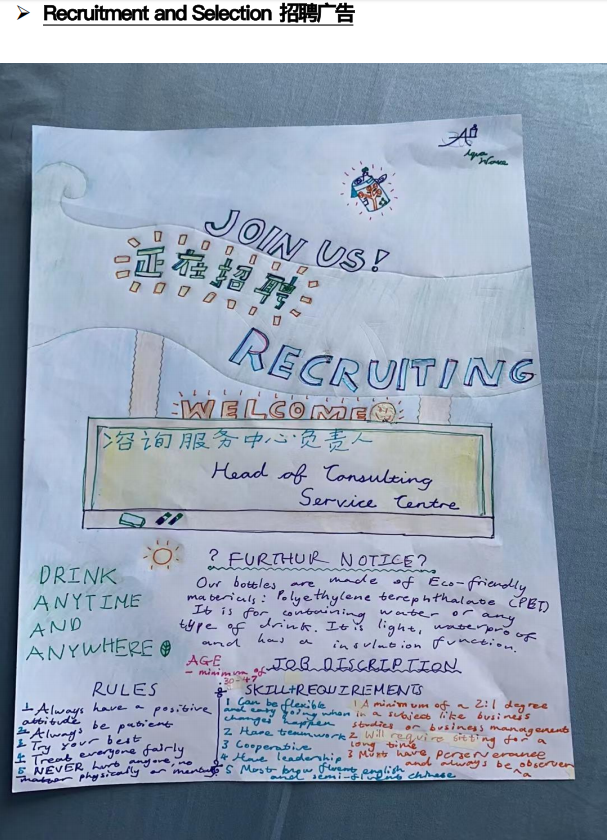 Recruitment and Selection 招聘广告
Aqua
Wave
JOIN US!
正在招聘
RECRUITING
WELCOME
咨询服务中心负责人
Head of Consulting
Service Centre
DRINK
ANYTIME
AND
ANYWHERE
? FURTHUR NOTICE?
Our bottles are made of Eco-friendly
materials: Polyethylene terephthalate (PET)
It is for containing water or any
type of drink. It is light, waterproof
and has a insulation function.
AGE
- minimum of
30-47
JOB DISCRIPTION
RULES
1 Always have a positive
attitude
2 Always be patient
3 Try your best
4 Treat everyone fairly
5 NEVER hurt anyone, no
matter physically or mentally
SKILL+REQUIREMENTS
1 Can be flexible
and easy going when
changes happen
2 Have teamwork
3 Cooperative
4 Have leadership
5 Must know fluent english
and semi-fluent chinese
1 A minimum of a 2:1 degree
in a subject like business
studies or business management
2 Will require sitting for a
long time
3 Must have perserverance
and always be observent